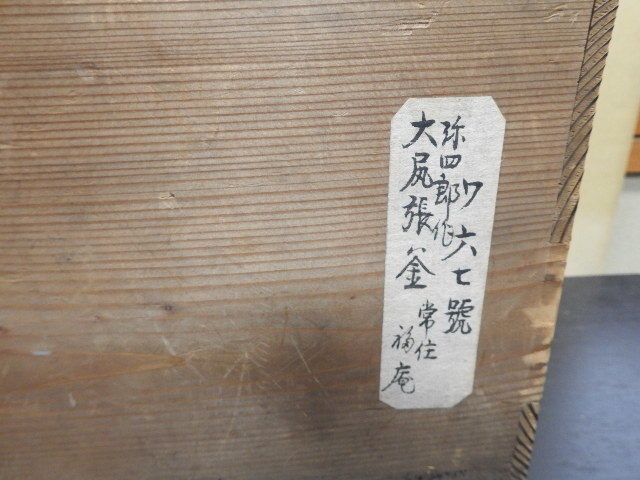 ワ六七號
弥四郎作
大尻張釜
常住
福庵